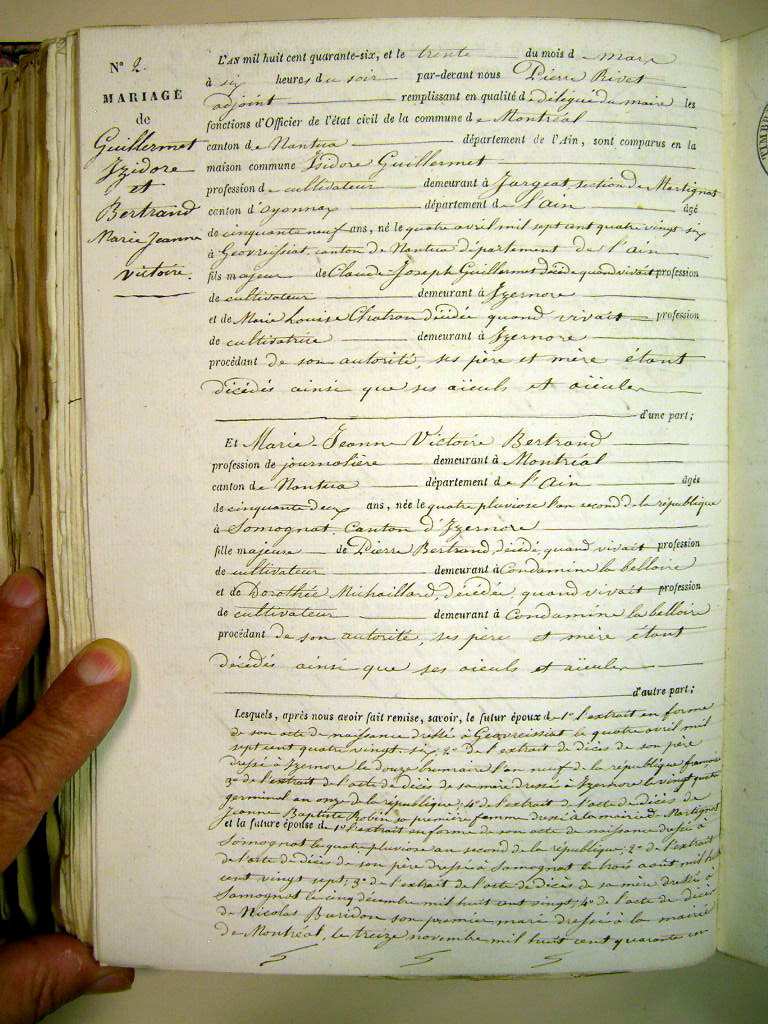 N° 2.
MARIAGE
de
Guillermet
Izidore
et
Bertrand
Marie Jeanne
victoire.
L'AN mil huit cent quarante-six, et le trente du mois d mars
à six heures du soir par-devant nous Pierre Rivet
adjoint remplissant en qualité d délégué du maire les
fonctions d'Officier de l'état civil de la commune de Montréal
canton de Nantua département de l'Ain, sont comparus en la
maison commune Isidore Guillermet
profession de cultivateur demeurant à Jargeat, section de Martignat
canton d'oyonnax département de l'ain âgé
de cinquante neuf ans, né le quatre avril mil sept cent quatre vingt six
à Geovreissiat, canton de Nantua département de l'ain
fils majeur de Claude-Joseph Guillermet décédé quand vivait profession
de cultivateur demeurant à Izernore
et de Marie Louise Chatron décédée quand vivait profession
de cultivatrice demeurant à Izernore
procédant de son autorité, ses père et mère étant
décédés ainsi que ses aïeuls et aïeules
d'une part;
Et Marie-Jeanne Victoire Bertrand
profession de journalière demeurant à Montréal
canton de Nantua département de l'Ain âgée
de cinquante deux ans, née le quatre pluviose l'an second de la république
à Somognat. Canton d'Izernore
fille majeure de Pierre Bertrand, décédé, quand vivait profession
de cultivateur demeurant à Condamine la belloire
et de Dorothée Michaillard, décédée, quand vivait profession
de cultivateur demeurant à Condamine la belloire
procédant de son autorité, ses père et mère étant
décédés ainsi que ses aieuls et aïeules
d'autre part;
Lesquels, après nous avoir fait remise, savoir, le futur époux de 1° l'extrait en forme
de son acte de naissance dressé à Geovreissiat le quatre avril mil
sept cent quatre vingt-six, 2° de l'extrait de décès de son père
dressé à Izernore le douze brumaire l'an neuf de la république française
3° de l'extrait de l'acte de décès de sa mère dressé à Izernore le vingt quatre
germinal an onze de la république; 4° de l'extrait de l'acte de décès de
Jeanne Baptiste Robin sa première femme dressé à la mairie de Martignat
et la future épouse de 1° l'extrait en forme de son acte de naissance dressé à
Somognat le quatre pluviose an second de la république; 2° de l'extrait
de l'acte de décès de son père dressé à Somognat le trois août mil huit
cent vingt sept; 3° de l'extrait de l'acte de décès de sa mère dressé à
Somognat le cinq décembre mil huit cent vingt; 4° de l'acte de décès
de Nicolas Buridon son premier mari dressé à la mairie
de Montréal, le treize novembre mil huit cent quarante un
TIMBRE